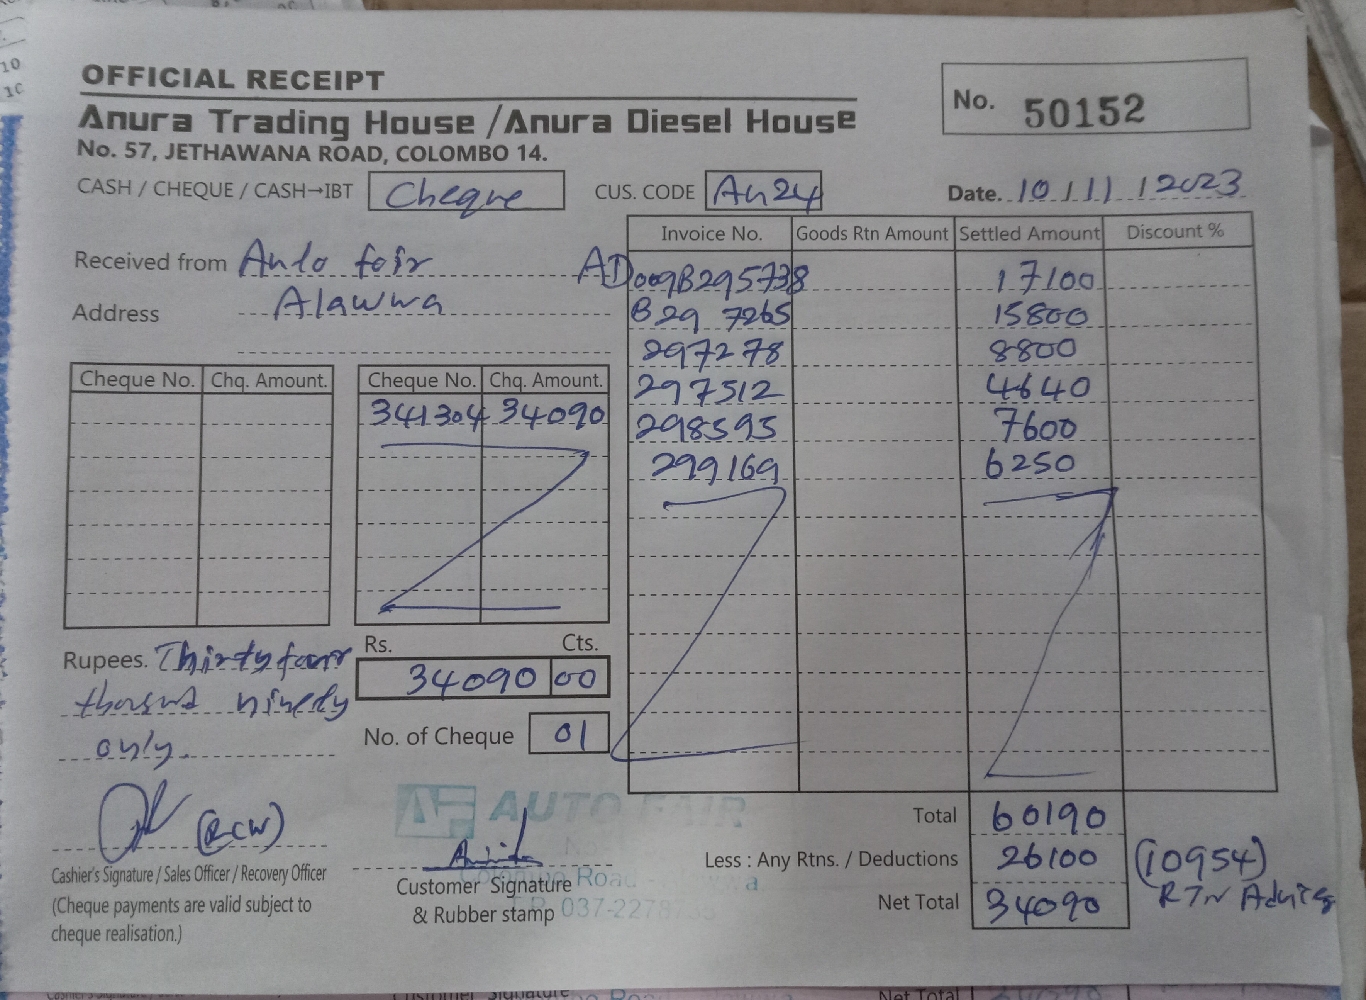 OFFICIAL RECEIPT
Anura Trading House /Anura Diesel House
No. 57, JETHAWANA ROAD, COLOMBO 14.
No. 50152
CASH / CHEQUE / CASH→IBT Cheque CUS. CODE Au24 Date. 10 / 11 / 2023
Received from Auto fair
Address Alawwa
Invoice No. Goods Rtn Amount Settled Amount Discount %
AD009B295738 17100
B29 7265 15800
297278 8800
297512 4640
298595 7600
299169 6250
Cheque No. Chq. Amount. Cheque No. Chq. Amount.
341304 34090
Rupees. Thirty four
thousand ninety
only.
Rs. Cts.
34090 00
No. of Cheque 01
(RCW)
Cashier's Signature / Sales Officer / Recovery Officer
(Cheque payments are valid subject to
cheque realisation.)
AF AUTO FAIR
Colombo Road
037-2278
Customer Signature
& Rubber stamp
Total 60190
Less : Any Rtns. / Deductions 26100 (10954)
RTN
Net Total 34090
Customer Signature
Net Total